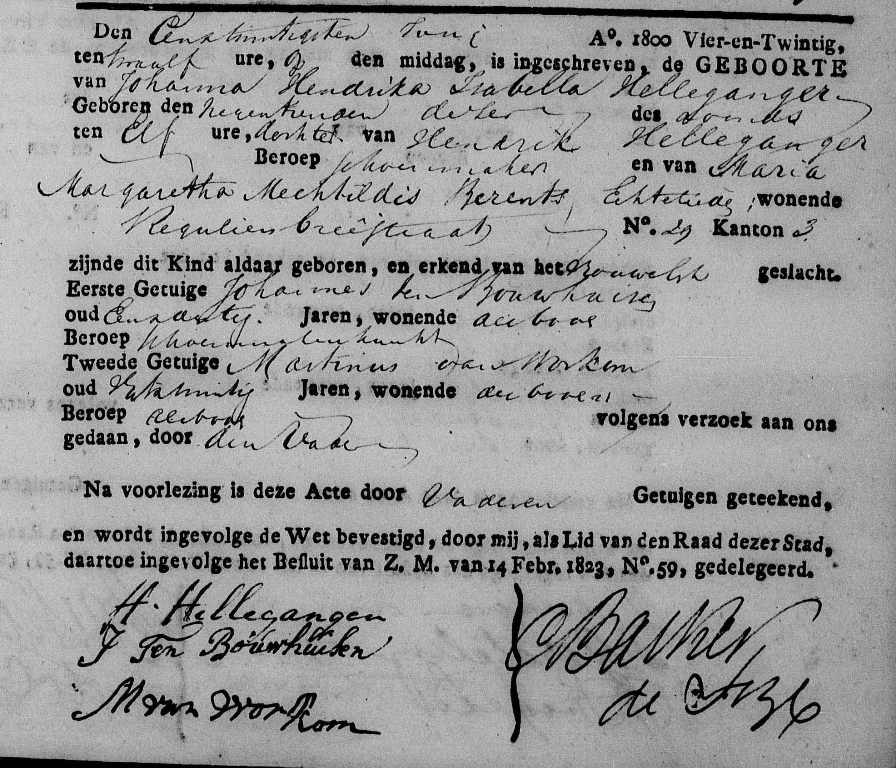 Den Eenentwintigsten Junij Aº. 1800 Vier-en-Twintig,
ten twaalf ure, op den middag, is ingeschreven, de GEBOORTE
van Johanna Hendrika Isabella Helleganger
Geboren den negentienden dezer des avonds
ten Elf ure, dochter van Hendrik Helleganger
Beroep schoenmaker en van Maria
Margaretha Mechtildis Berents, Echtelieden, wonende
Reguliers breêstraat Nº. 29 Kanton 3
zijnde dit Kind aldaar geboren, en erkend van het Vrouwelijk geslacht.
Eerste Getuige Johannes ten Bouwhuisen
oud Jaren, wonende als boven
Beroep
Tweede Getuige Martinus van Workom
oud Jaren, wonende als boven
Beroep als boven volgens verzoek aan ons
gedaan, door den Vader
Na voorlezing is deze Acte door Vader en Getuigen geteekend,
en wordt ingevolge de Wet bevestigd, door mij, als Lid van den Raad dezer Stad,
daartoe ingevolge het Besluit van Z. M. van 14 Febr. 1823, Nº. 59, gedelegeerd.
H. Hellegangen
J Ten Bouwhuisen
M van Workom
Backer
de